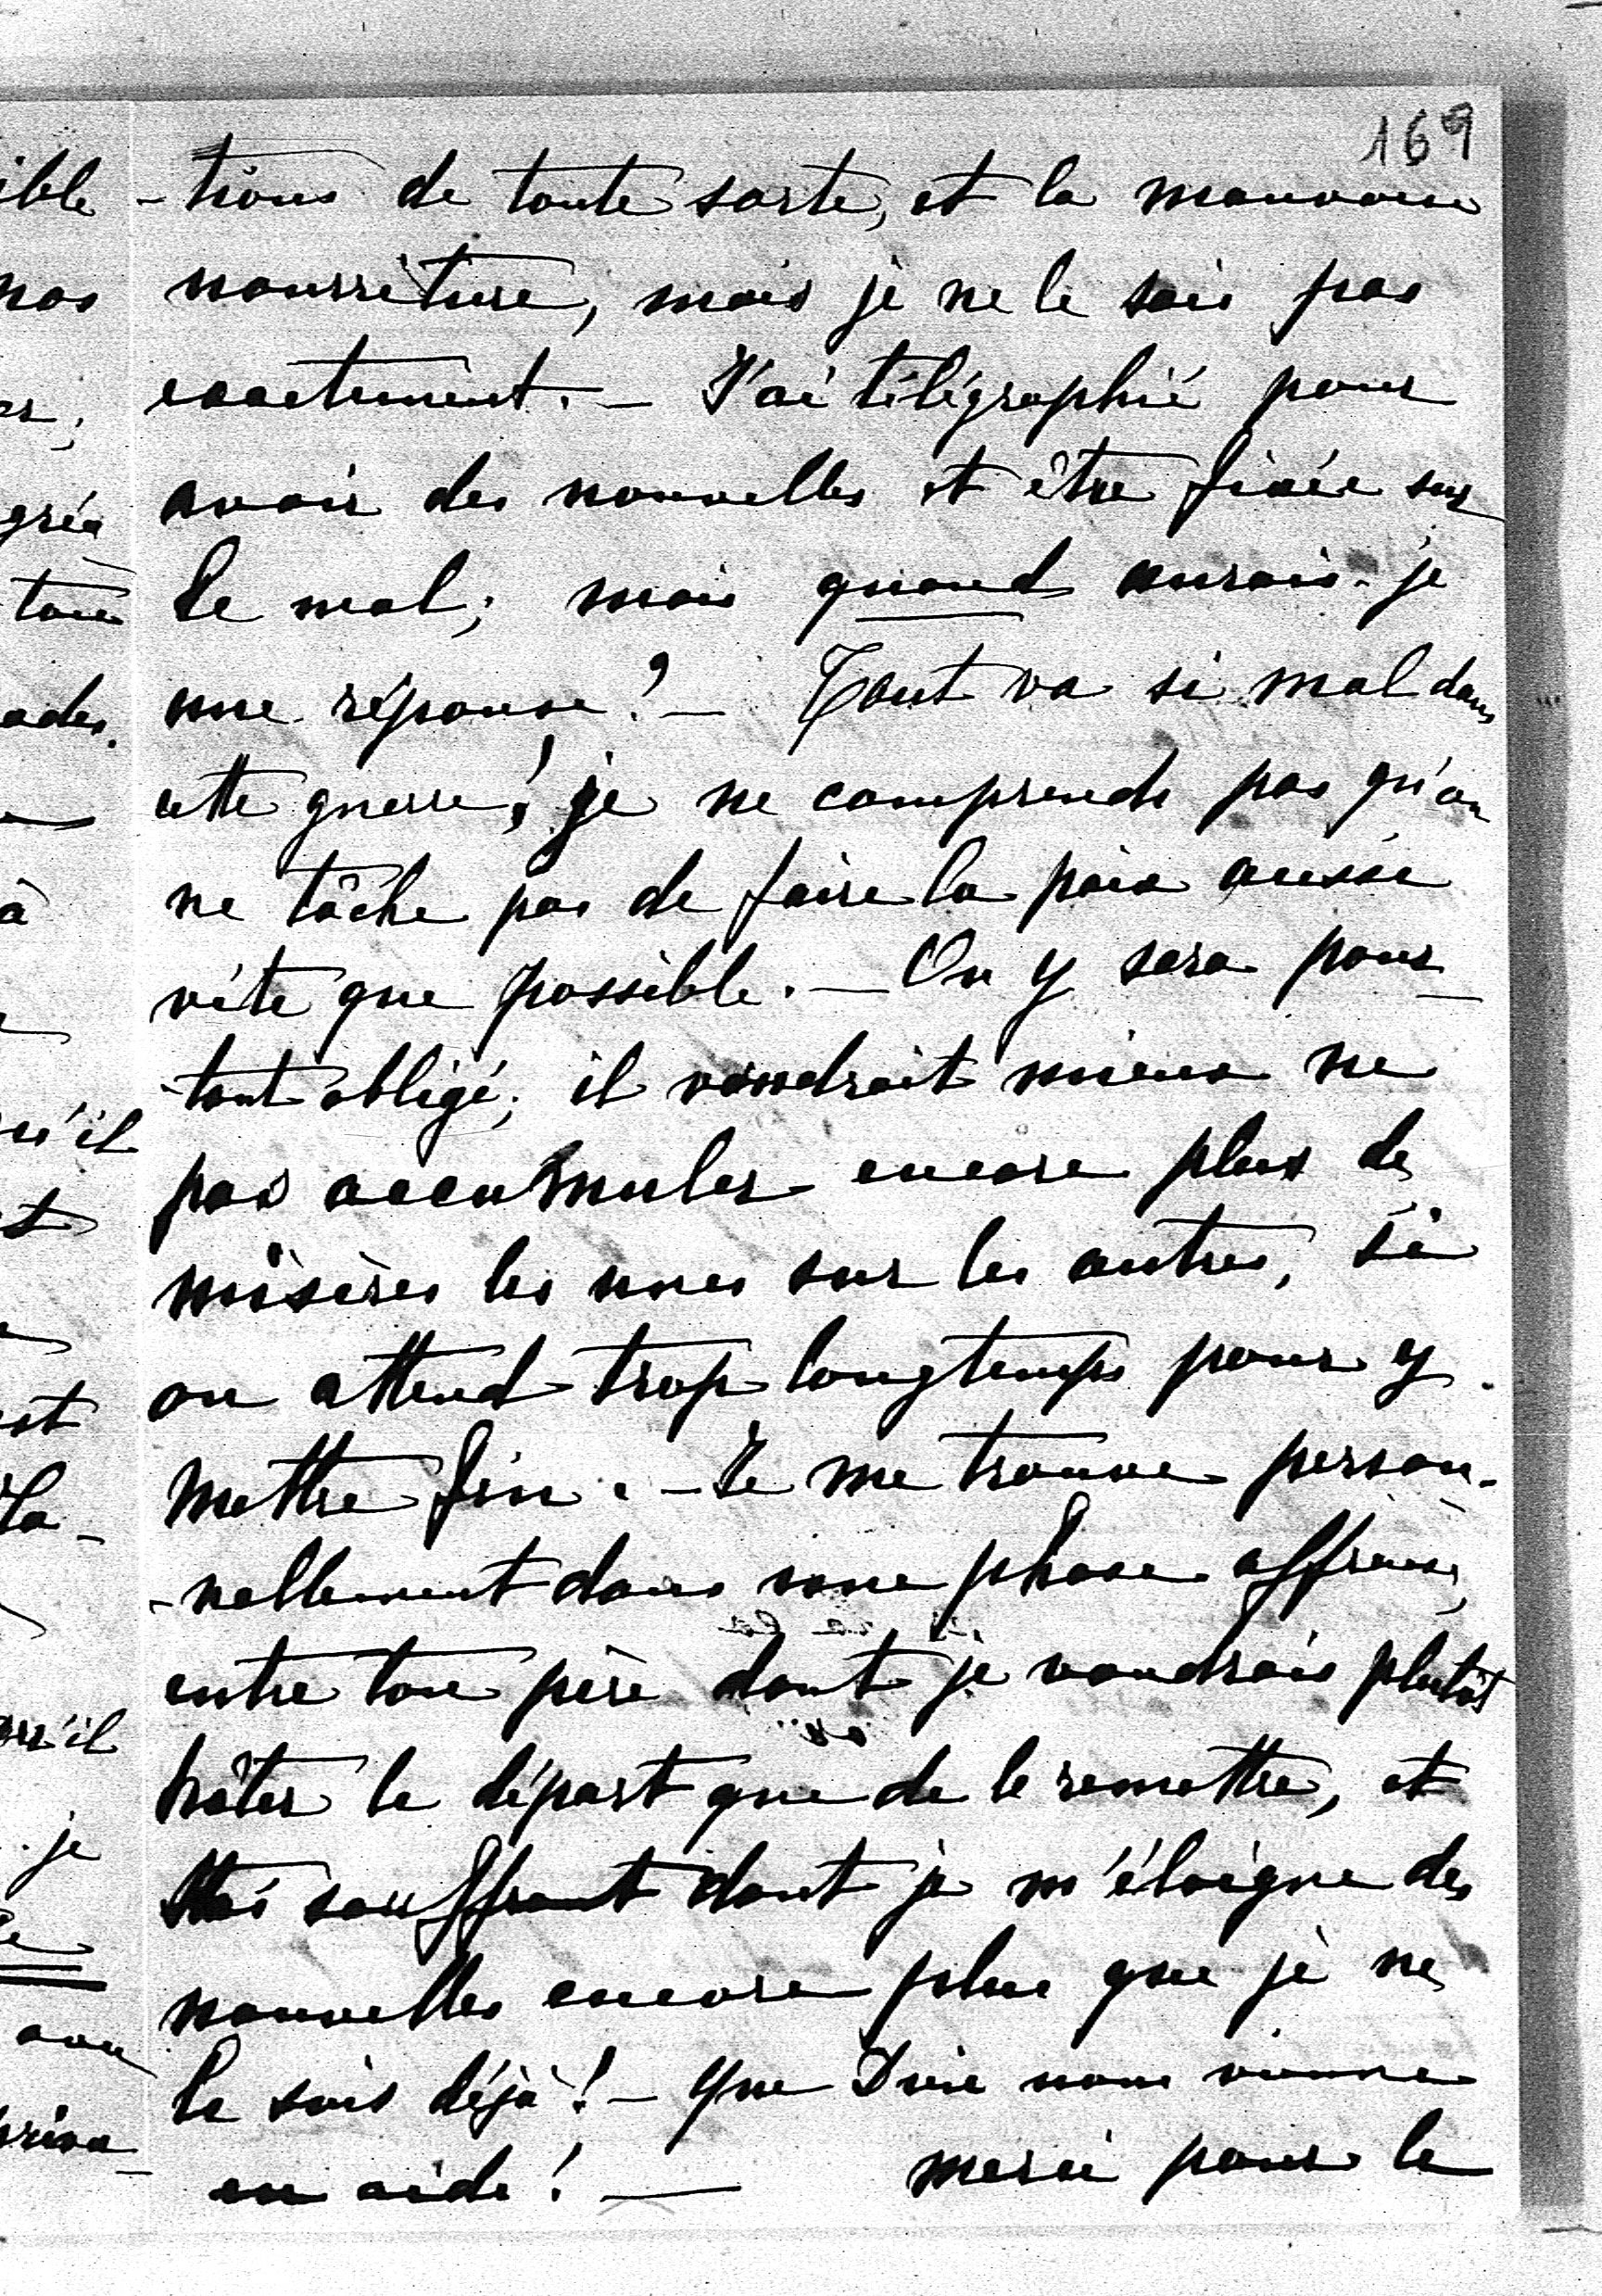 169
-tions de toute sorte, et la mauvaise
nourriture, mais je ne le sais pas
exactement. — J'ai télégraphié pour
avoir des nouvelles et être fixée sur
le mal; mais quand aurais-je
une réponse? — Tout va si mal dans
cette guerre! je ne comprends pas qu'on
ne tâche pas de faire la paix aussi
vite que possible. — On y sera pour-
tant obligé; il vaudrait mieux ne
pas accumuler encore plus de
misères les unes sur les autres, si
on attend trop longtemps pour y
mettre fin. — Je me trouve person-
-nellement dans une phase affreuse,
entre ton père dont je voudrais plutôt
hâter le départ que de le remettre, et
souffrant dont je m'éloigne des
nouvelles encore plus que je ne
le suis déjà! — Que Dieu nous vienne
en aide! — merci pour le